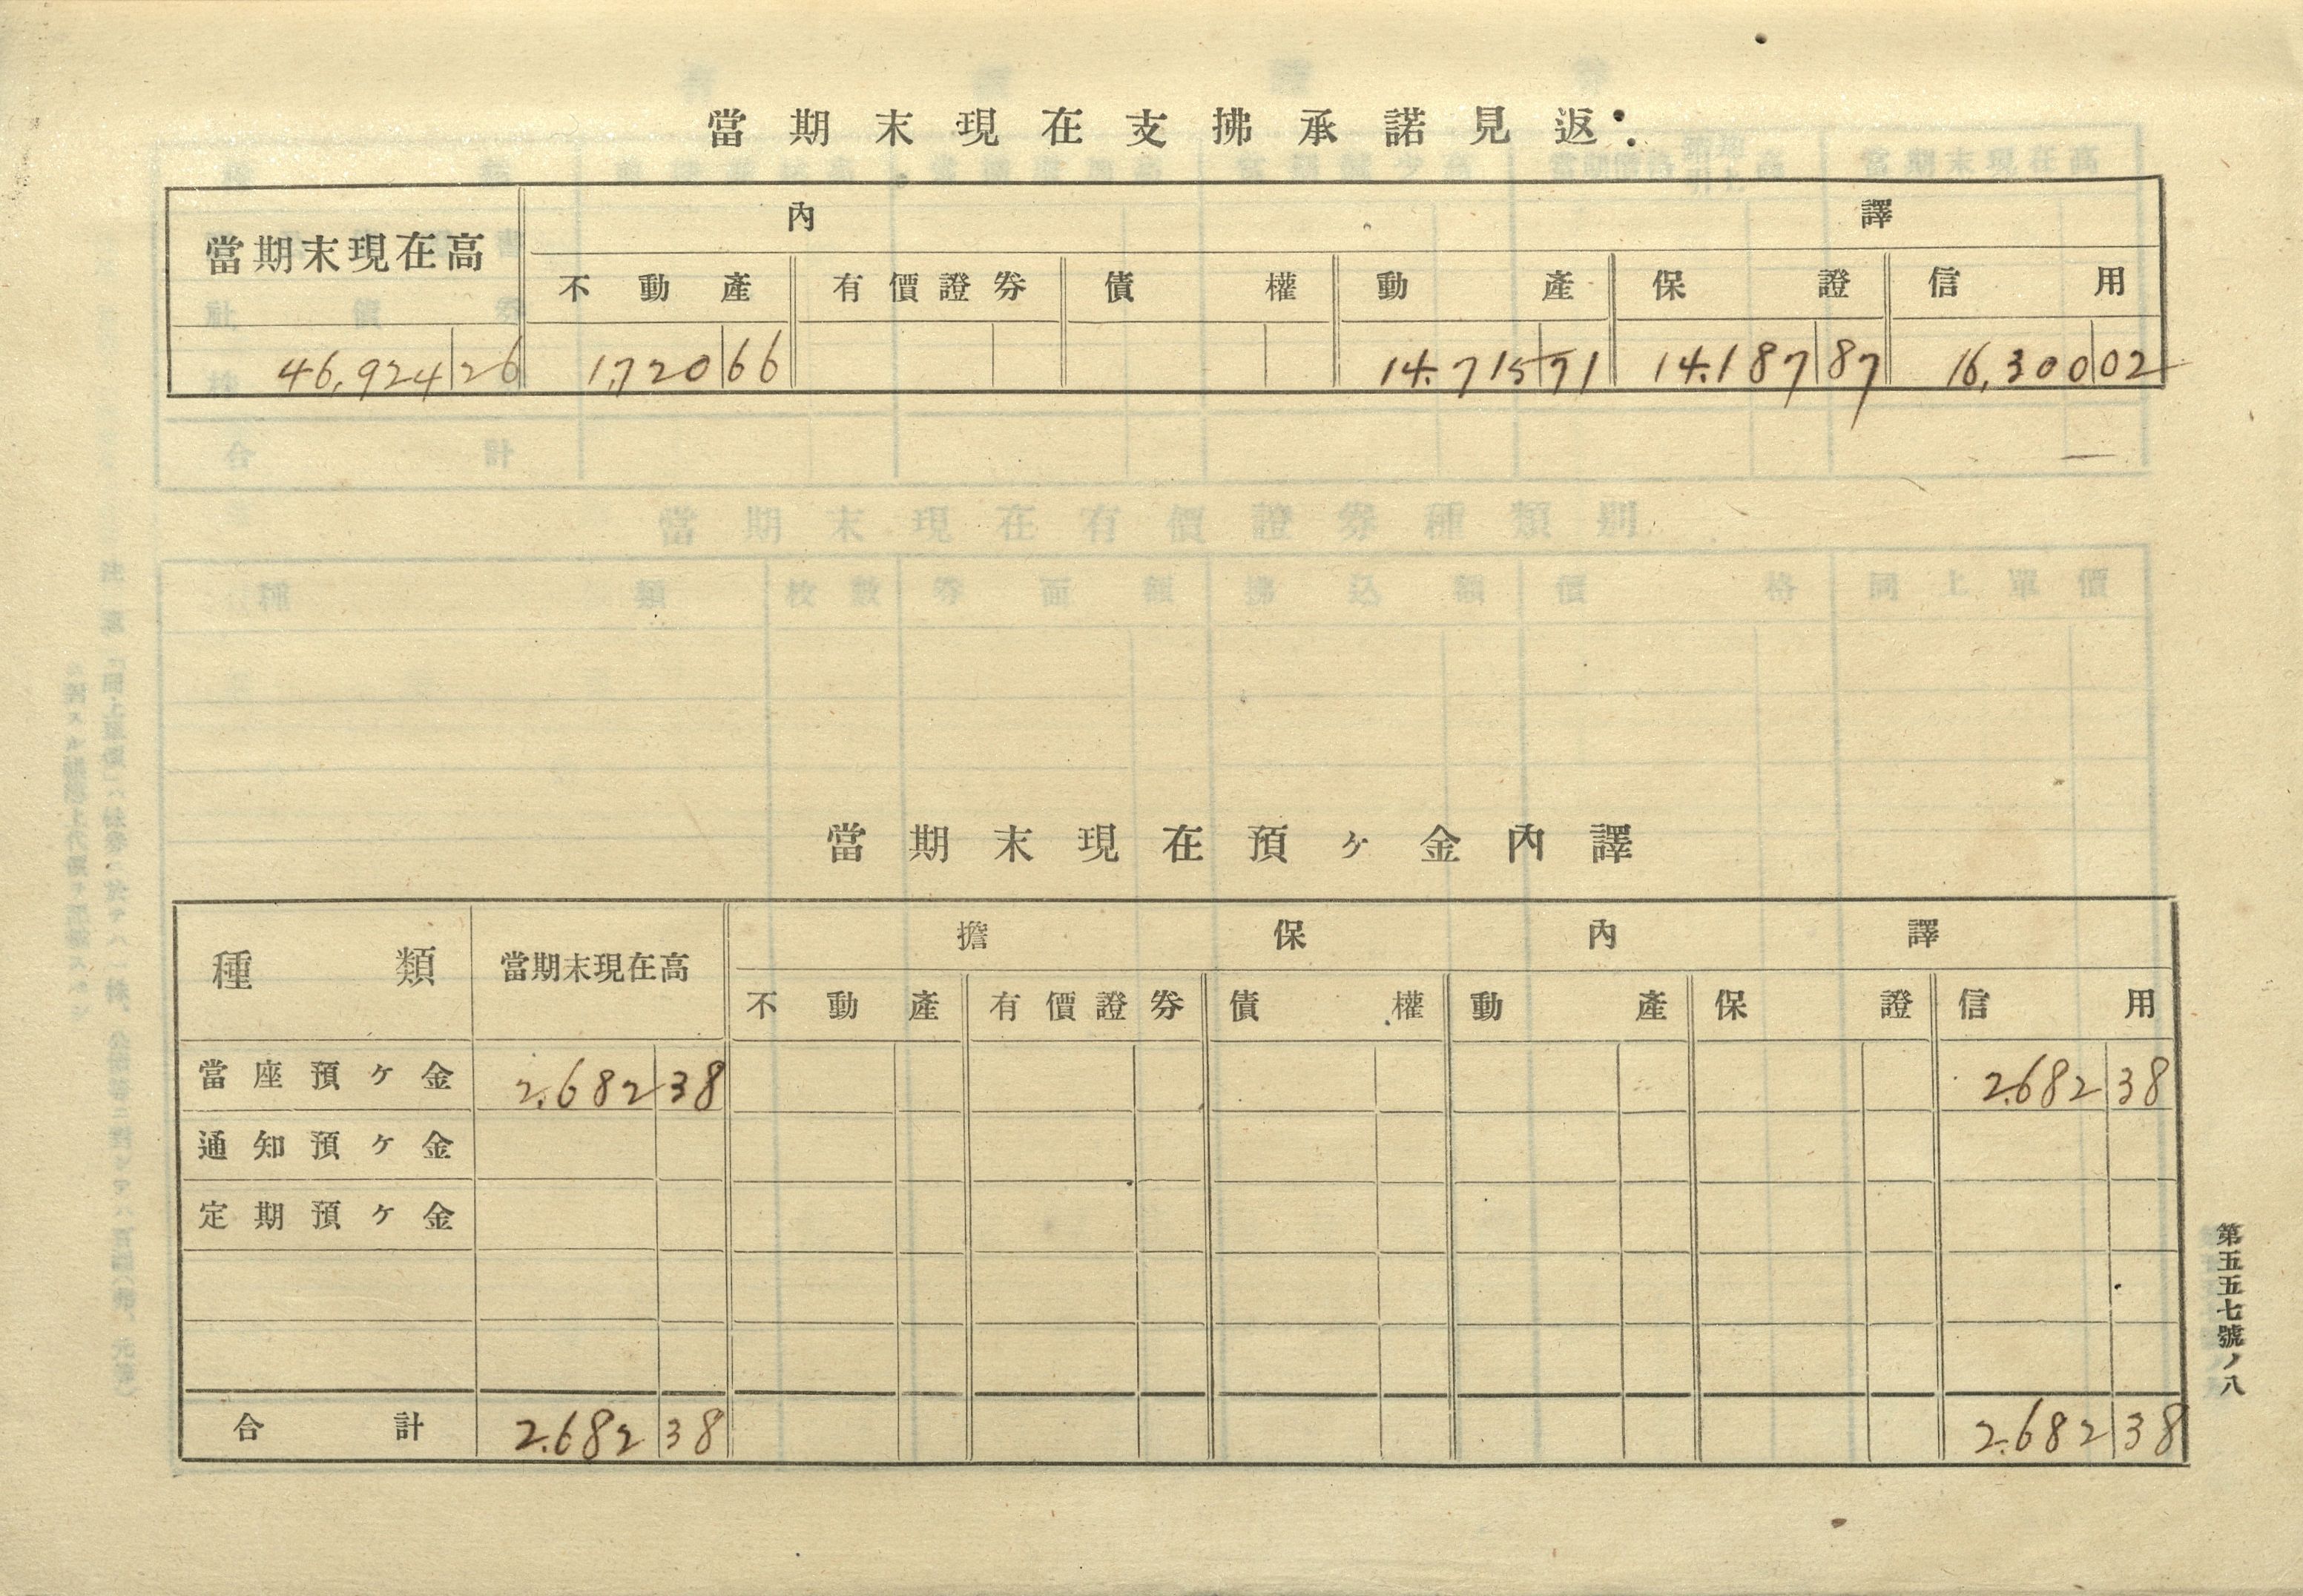 當期末現在支拂承諾見返
當期末現在高 內譯
不動產 有價證券 債權 動產 保證 信用
46,924 26 1,720 66 14,715 71 14,187 87 16,300 02
當期末現在預ヶ金內譯
種類 當期末現在高 擔保內譯
不動產 有價證券 債權 動產 保證 信用
當座預ヶ金 2,682 38 2,682 38
通知預ヶ金
定期預ヶ金
合計 2,682 38 2,682 38
第五五七號ノ八